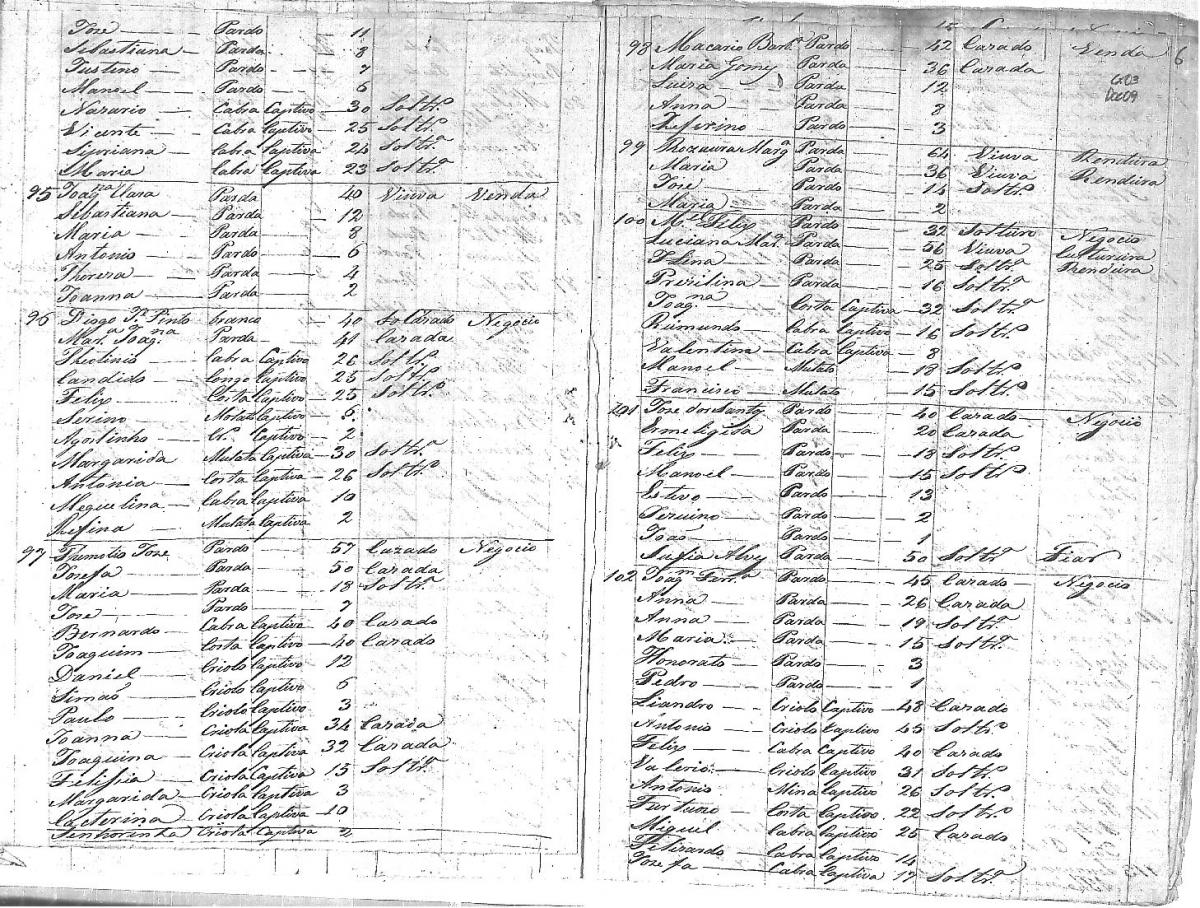 Jose Pardo 11
Sebastiana Parda 8
Justino Pardo 7
Manoel Pardo 6
Nazario Cabra Captivo 30 Soltrº
Vicente Cabra Captivo 25 Soltrº
Sipriana Cabra Captiva 24 Soltrª
Maria Cabra Captiva 23 Soltrª
95 Joaqna Clara Parda 40 Viuva Venda
Sebastiana Parda 12
Maria Parda 8
Antonio Pardo 6
Thereza Parda 4
Joanna Parda 2
96 Diogo Pinto branco 40 Cazado Negocio
Marª Joaqna Parda 41 Cazada
Theotinio Cabra Captivo 26 Soltrº
Candido Congo Captivo 23 Soltrº
Felix Costa Captivo 25 Soltrº
Serino Captivo 6
Agostinho Cr. Captivo 2
Margarida Mulata Captiva 30 Soltrª
Antonia Costa Captiva 26 Soltrª
Mequilina Cabra Captiva 10
Refina Mulata Captiva 2
97 Thimotio Jose Pardo 57 Cazado Negocio
Josefa Parda 50 Cazada
Maria Parda 18 Soltrª
Jose Pardo 7
Bernardo Cabra Captivo 40 Cazado
Joaquim Costa Captivo 40 Cazado
Daniel Criolo Captivo 12
Simaõ Criolo Captivo 6
Paulo Criolo Captivo 3
Joanna Criola Captiva 34 Cazada
Joaquina Criola Captiva 32 Cazada
Felissia Criola Captiva 15 Soltrª
Margarida Criola Captiva 3
Caterina Criola Captiva 10
Senhorinha Criola Captiva 2
98 Macario Barbª Pardo 42 Cazado Venda 6
Maria Gomes Parda 36 Cazada
G03
Luiza Parda 12
Doc09
Anna Parda 8
Zeferino Pardo 3
99 Rozaura Marª Parda 64 Viuva Rendeira
Maria Parda 36 Viuva Rendeira
Jose Pardo 14 Soltrº
Maria Parda 2
100 Mel Felix Pardo 32 Solteiro Negocio
Luciana Marª Parda 56 Viuva Custureira
Elina Parda 25 Soltrª Rendeira
Prizilina Parda 16 Soltrª
Joaqna Costa Captiva 32 Soltrª
Raimundo Cabra Captivo 16 Soltrº
Valentina Cabra Captiva 8
Manoel Mulato 18 Soltrº
Francisco Mulato 15 Soltrº
101 Jose dos Santos Pardo 40 Cazado Negocio
Ermeligida Parda 20 Cazada
Felix Pardo 18 Soltrº
Manoel Pardo 15 Soltrº
Estevo Pardo 13
Pardo 2
Joaõ Pardo 1
Alves Parda 50 Soltrª Fiar
102 Joaqm Ferrª Pardo 45 Cazado Negocio
Anna Parda 26 Cazada
Anna Parda 19 Soltrª
Maria Parda 15 Soltrª
Honorato Pardo 3
Pedro Pardo 1
Liandro Criolo Captivo 48 Cazado
Antonio Criolo Captivo 45 Soltrº
Felix Cabra Captivo 40 Cazado
Valerio Criolo Captivo 31 Soltrº
Antonio Mina Captivo 26 Soltrº
Furtuozo Costa Captivo 22 Soltrº
Miguel Cabra Captivo 25 Cazado
Felizardo Cabra Captivo 14
Josefa Cabra Captiva 17 Soltrª